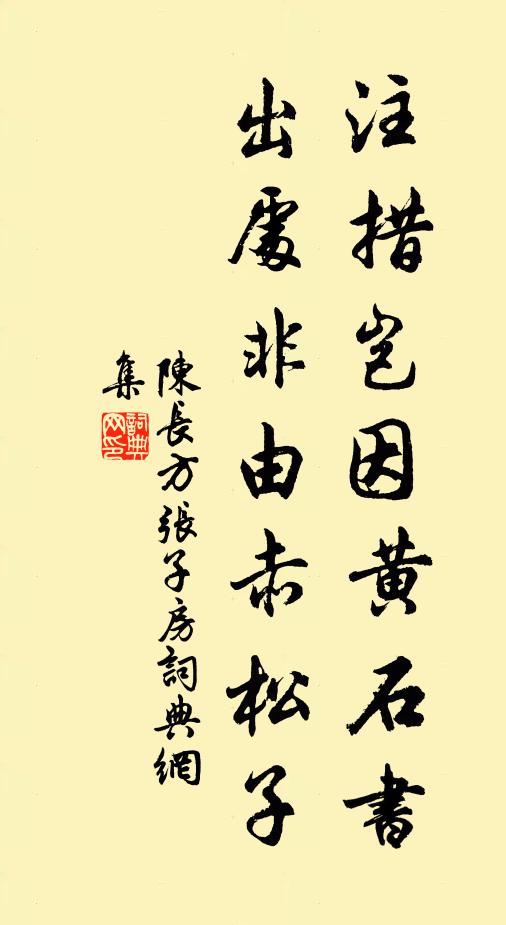 注措豈因黄石書
出處非由赤松子
陳長方張子房詞典網
集
詞典
网印